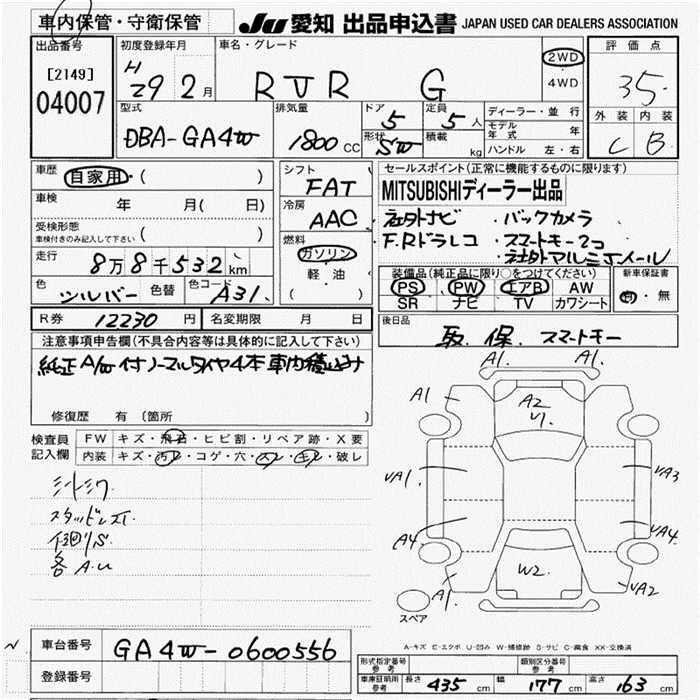 車内保管・守衛保管
JU 愛知 出品申込書 JAPAN USED CAR DEALERS ASSOCIATION
出品番号
[2149]
04007
初度登録年月
H 29 2 月
車名・グレード
RVR G
2WD
・
4WD
評価点
3.5
外装 内装
C B
型式
DBA-GA4W
排気量
1800 CC
ドア
5
形状
SW
定員
5 人
積載
kg
ディーラー・並行
モデル年式 年
ハンドル 左・右
車歴
自家用・( )
車検 年 月( 日)
受検形態
車検付きのみ記入して下さい ( )
走行
8万8千532km
色
シルバー
色替
色コード
A31
シフト
FAT
冷房
AAC
燃料
ガソリン
・
軽油
( )
セールスポイント(正常に機能するものに限ります)
MITSUBISHIディーラー出品
社外ナビ ・バックカメラ
F.Rドラレコ ・スマートキー2コ
・社外アルミホイール
装備品(純正品に限り○をつけてください)
PS PW エアB AW
SR ナビ TV カワシート
新車保証書
有・無
R券 12230 円
名変期限 月 日
後日品
取.保.スマートキー
注意事項申告欄(不具合内容等は具体的に記入して下さい)
純正A/W付ノーマルタイヤ4本車内積込み
修復歴 有 (箇所
検査員
記入欄
FW キズ・飛石・ヒビ割・リペア跡・X要
内装 キズ・汚レ・コゲ・穴・スレ・キレ・破レ
スタッドレス
各A.U
A1. A1.
A1
A2
V1.
VA1. VA3
A4 VA4.
W2.
A1. VA2
スペア
A-キズ E-エクボ U-凹み W-補修跡 S-サビ C-腐食 XX-交換済
車台番号
GA4W-0600556
登録番号
形式指定番号
参考
類別区分番号
参考
車庫証明用
参考
長さ 435 cm 幅 177 cm 高さ 163 cm